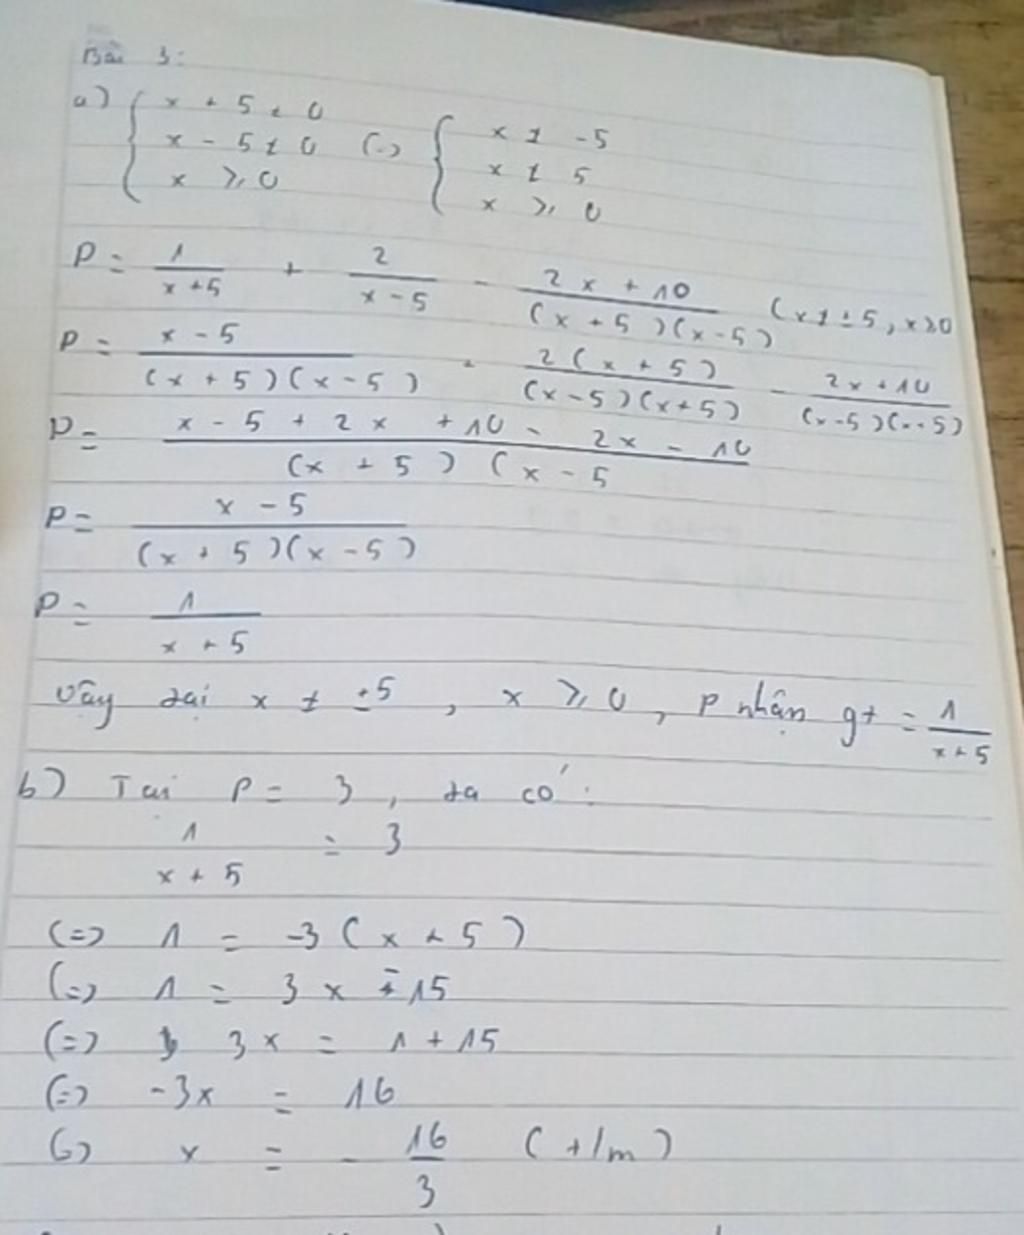 Bài 3:
a) { x + 5 ≠ 0
x - 5 ≠ 0 (=) 
x ⩾ 0
{ x ≠ -5
x ≠ 5
x ⩾ 0
P = 1/(x+5) + 2/(x-5) - (2x+10)/((x+5)(x-5)) (x ≠ ±5, x⩾0
P = (x-5)/((x+5)(x-5)) + 2(x+5)/((x-5)(x+5)) - (2x+10)/((x-5)(x+5))
P = (x - 5 + 2x + 10 - 2x - 10)/((x+5)(x-5
P = (x-5)/((x+5)(x-5))
P = 1/(x+5)
Vậy tại x ≠ ±5, x ⩾ 0, P nhận gt = 1/(x+5)
b) Tại P = 3, ta có:
1/(x+5) = 3
(=) 1 = -3(x+5)
(=) 1 = 3x - 15
(=) 3x = 1 + 15
(=) -3x = 16
(=) x = - 16/3 (t/m)